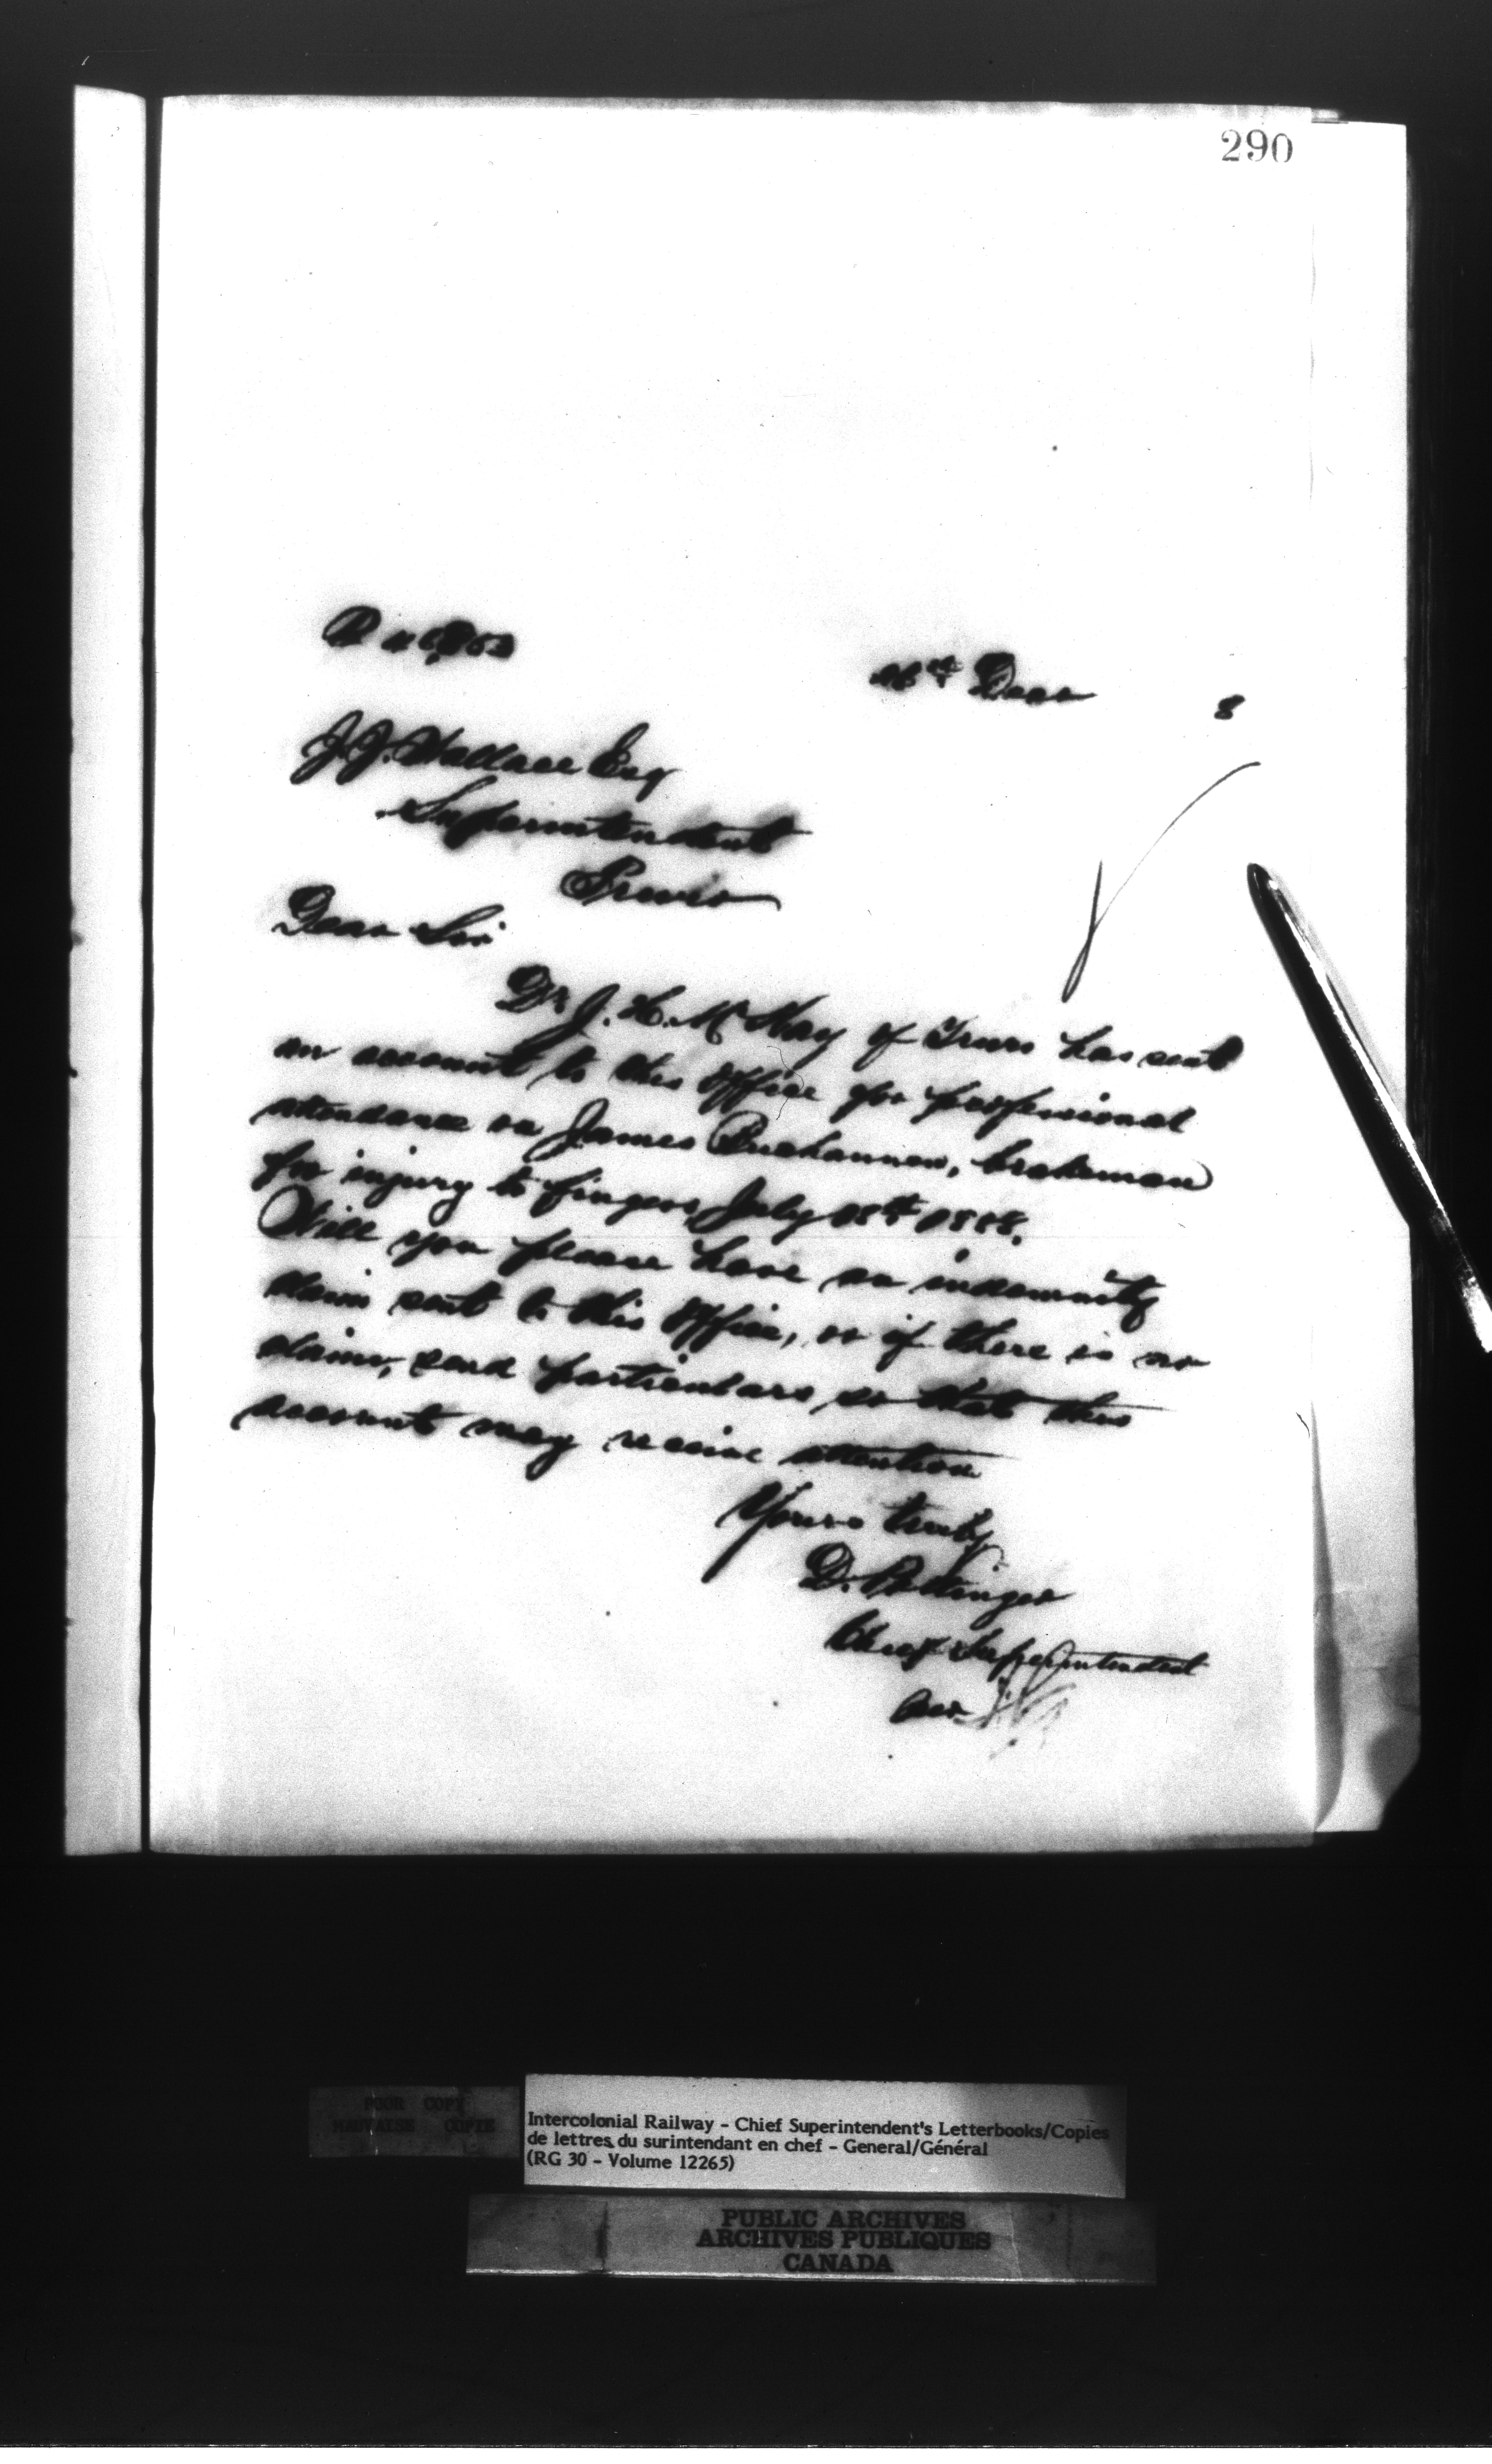 290
26th Decr 8
J. J. Wallace Esq
Superintendent
Truro
Dear Sir
Dr J. H. McKay of Truro has sent
an account to this office for professional
attendance on James Buchannan, brakeman
for injury to fingers, July 18th 1888.
Will you please have an indemnity
claim sent to this office, or if there is no
claim, send particulars so that this
account may receive attention
Yours truly
D. Pottinger
Chief Superintendent
Per
POOR COPY
MAUVAISE COPIE
Intercolonial Railway - Chief Superintendent's Letterbooks/Copies
de lettres du surintendant en chef - General/Général
(RG 30 - Volume 12265)
PUBLIC ARCHIVES
ARCHIVES PUBLIQUES
CANADA